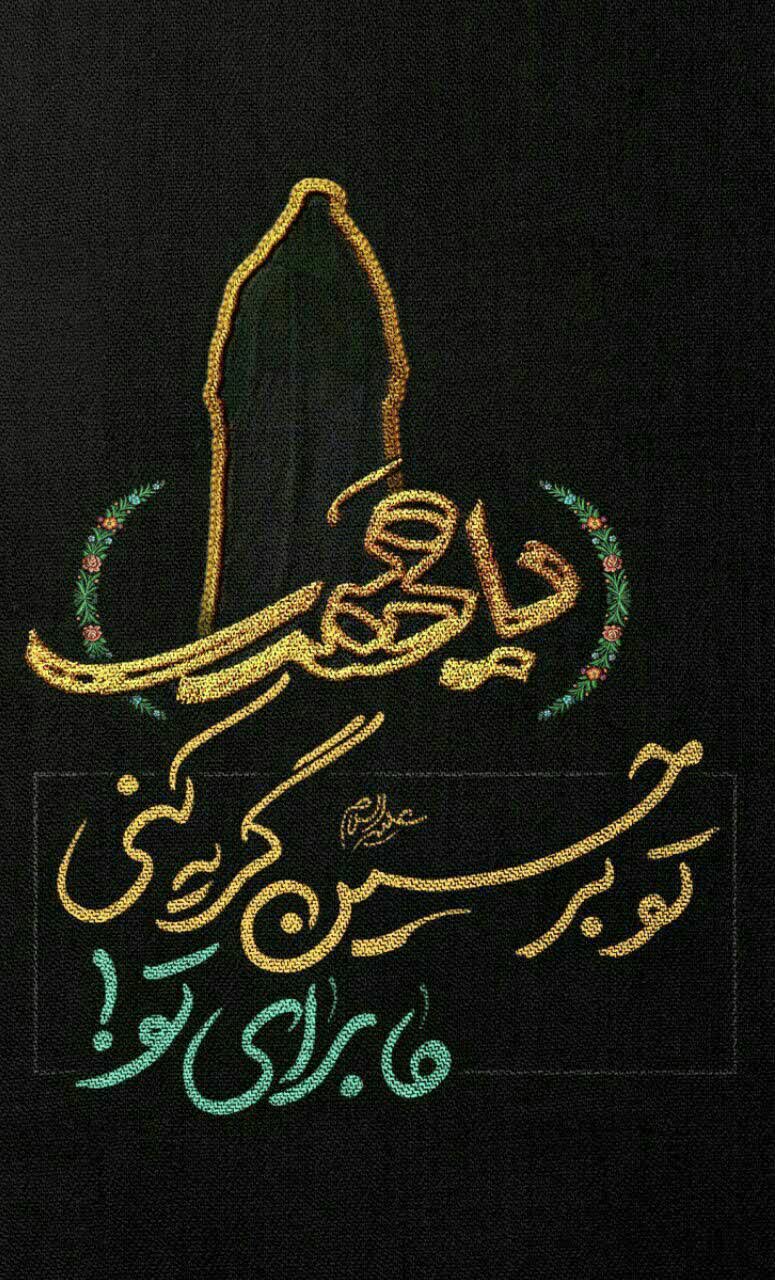 یا
تو بر حسین علیه السلام گریه کنی
ما برای تو!